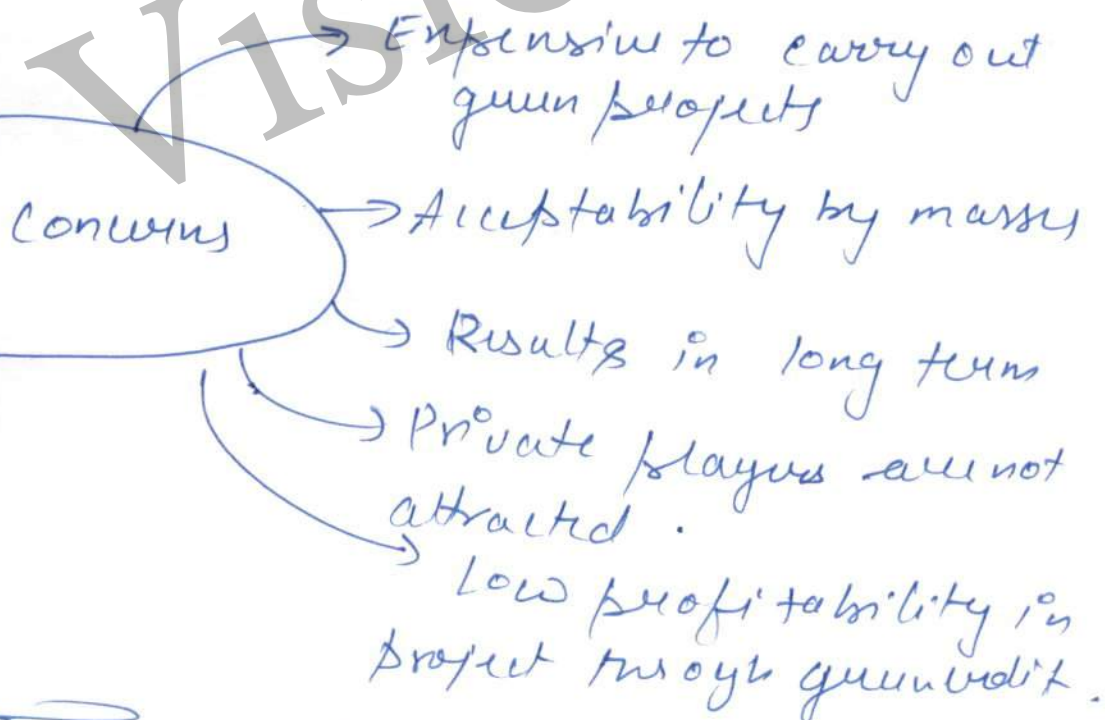 Visio
Expensive to carry out
green projects
Concerns
Acceptability by masses
Results in long term
Private players are not
attracted.
Low profitability in
project through green credit.